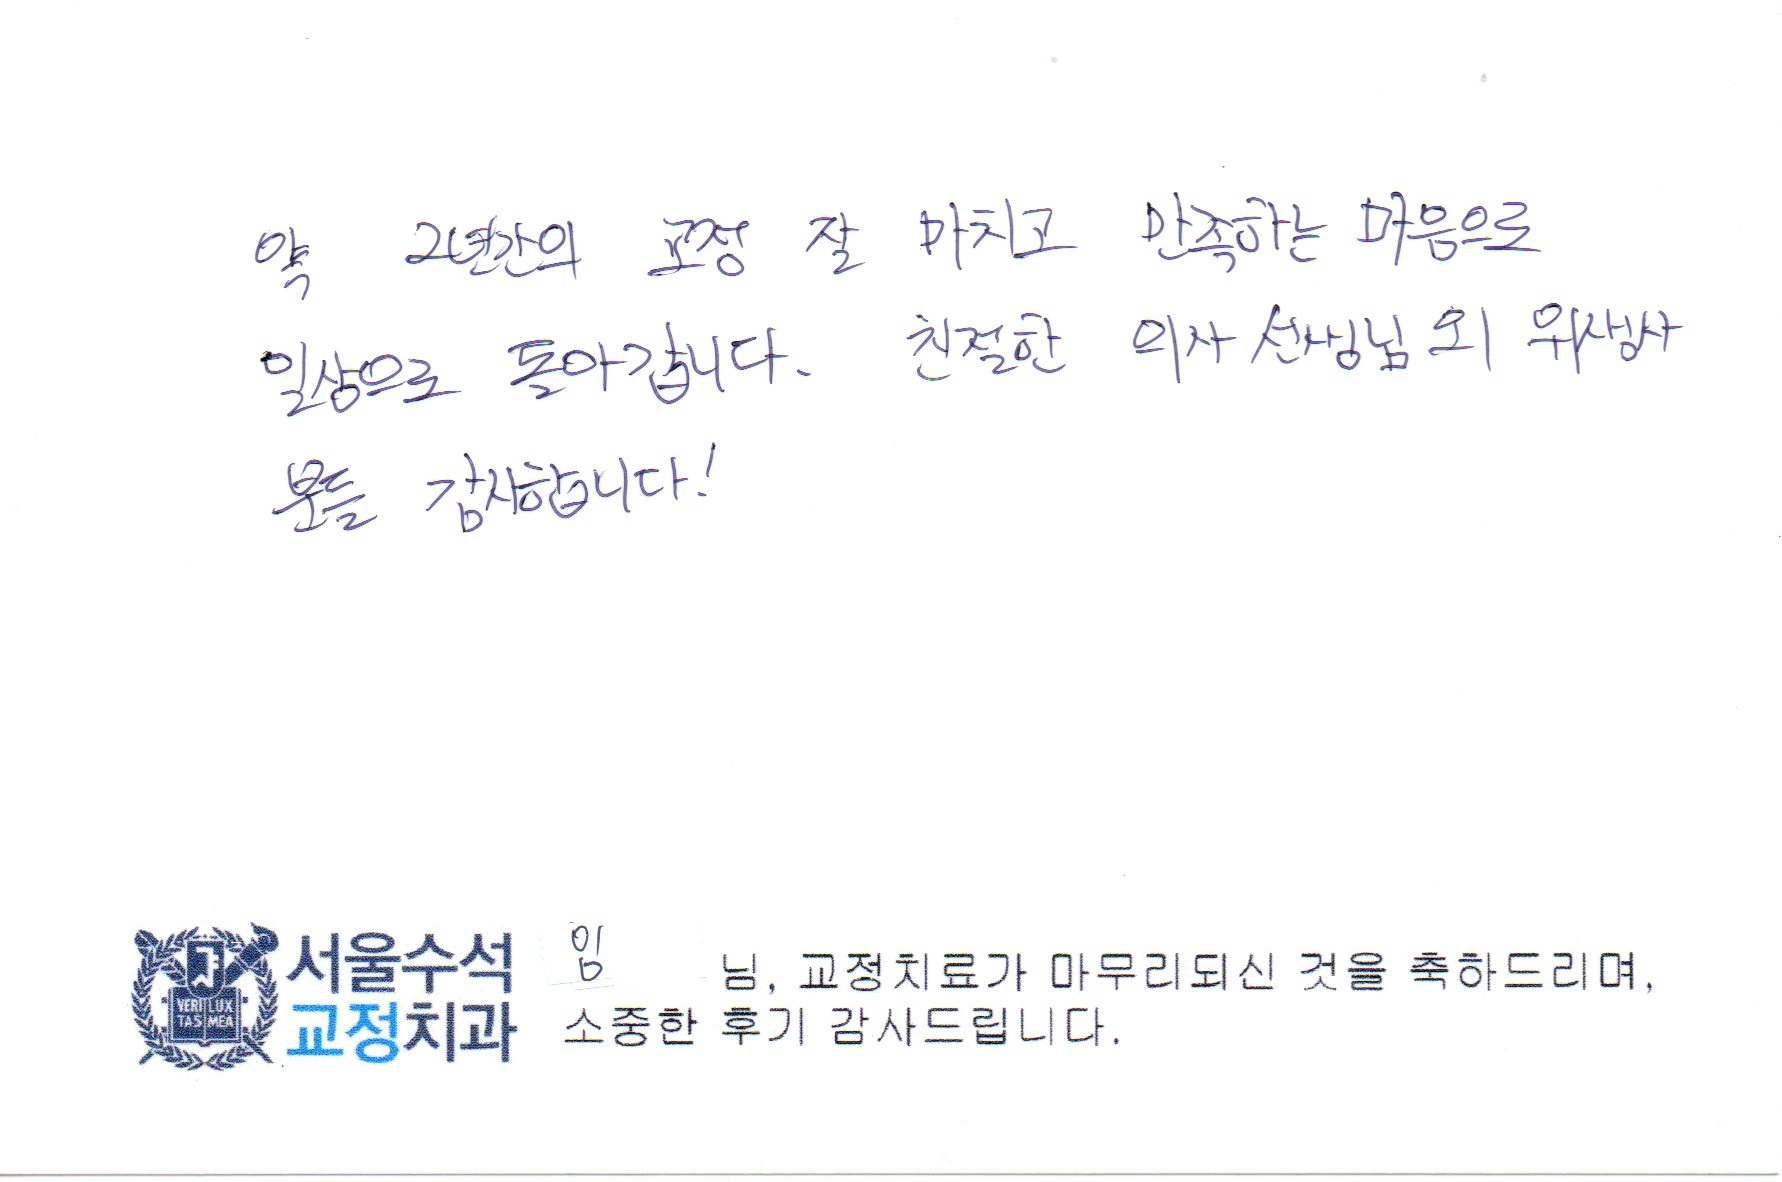 약 2년간의 교정 잘 마치고 만족하는 마음으로
일상으로 돌아갑니다. 친절한 의사 선생님 외 위생사
분들 감사합니다!
VERI LUX
TAS MEA
서울수석
교정치과
임 님, 교정치료가 마무리되신 것을 축하드리며,
소중한 후기 감사드립니다.